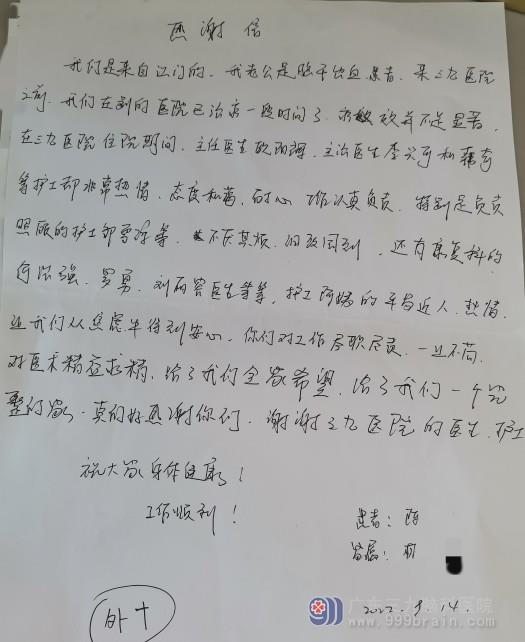 感谢信
我们是来自江门的，我老公是脑干出血患者，来三九医院
之前，我们在别的医院已治疗一段时间了，效果并不是显著，
在三九医院住院期间，主任医生欧阳珊，主治医生李兴
等护士都非常热情，态度和蔼，耐心，工作认真负责，特别是负责
照顾的护士等，不厌其烦，细致周到，还有康复科的
强、罗勇、刘丽容医生等等，护工阿姨的平易近人，热情，
让我们从焦虑中得到安心，你们对工作尽职尽责，一丝不苟，
对医术精益求精，给了我们全家希望，给了我们一个完
整的家，真的好感谢你们，谢谢三九医院的医生，护士
祝大家身体健康！
工作顺利！
患者：陈
家属：
2022.9.14
外十
广东三九脑科医院
www.999brain.com